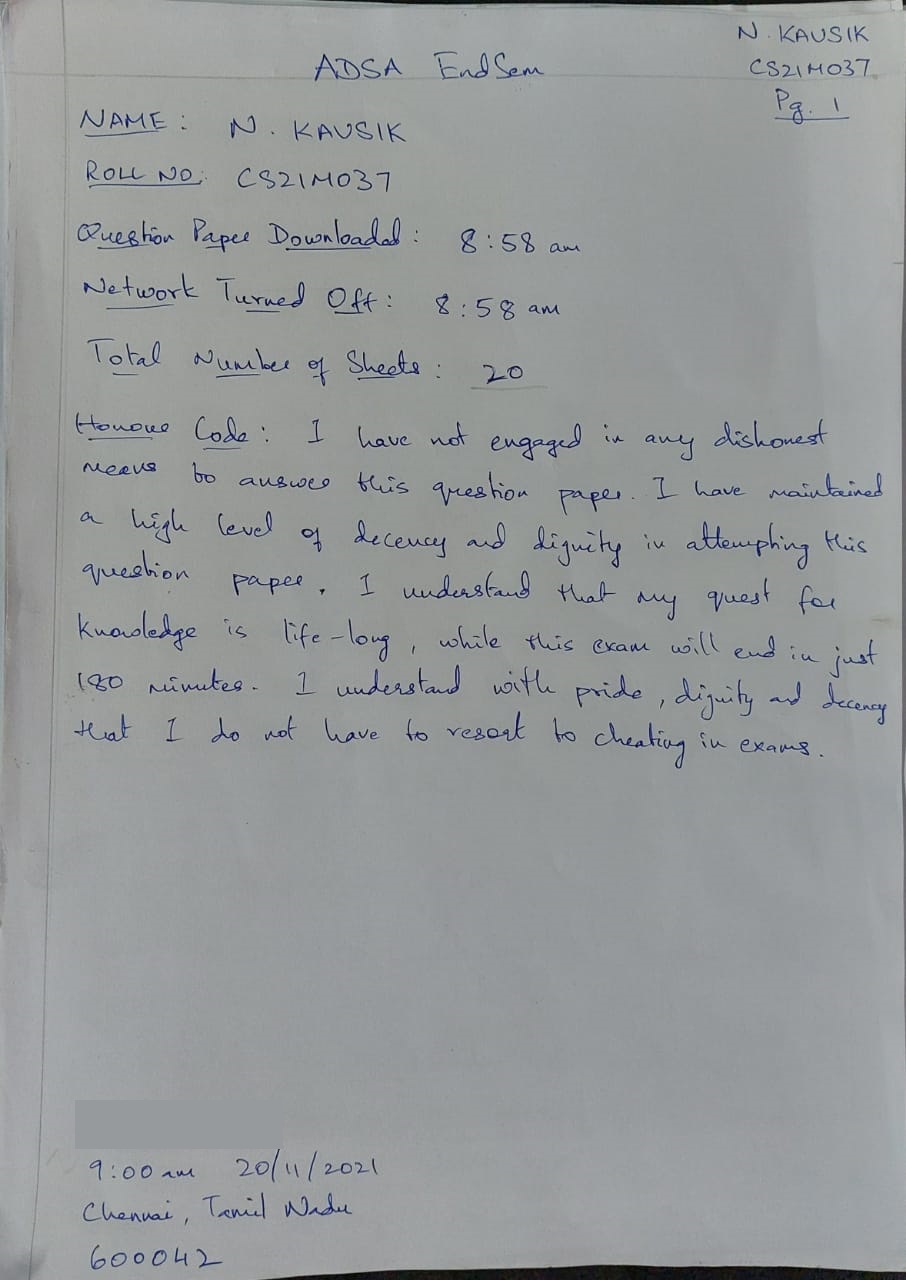 N. KAUSIK
CS21M037
Pg. 1
ADSA EndSem
NAME : N. KAUSIK
ROLL NO: CS21M037
Question Paper Downloaded : 8:58 am
Network Turned Off : 8:58 am
Total Number of Sheets : 20
Honour Code : I have not engaged in any dishonest
means to answer this question paper. I have maintained
a high level of decency and dignity in attempting this
question paper. I understand that my quest for
knowledge is life-long, while this exam will end in just
180 minutes. I understand with pride, dignity and decency
that I do not have to resort to cheating in exams.
9:00 am 20/11/2021
Chennai, Tamil Nadu
600042